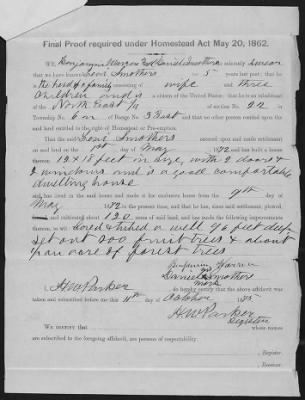 Final Proof required under Homestead Act May 20, 1862.
WE, Benjamin & Daniel Smothers solemnly swear
that we have known Smothers for 5 years last past; that he
is the head of a family consisting of wife and three
Children and is a citizen of the United States; that he is an inhabitant
of the North East ¼ of section No. 22
Township No. 6 n of Range No. 3 East and that no other person resided upon the
said land entitled to the right of Homestead or Pre-emption.
That the said Smothers entered upon and made settlement
on said land on the 1st day of May 1872 and has built a house
thereon 12 x 18 feet in size, with 2 doors &
2 windows and is a good comfortable
dwelling house
and has lived in the said house and made it his exclusive home from the 9th day of
May 1872 to the present time, and that he has, since said settlement, plowed,
and cultivated about 120 acres of said land, and has made the following improvements
thereon, to wit: bored & a well 46 feet deep
set out 200 fruit trees & about
of forest trees
Benjamin
Daniel Smothers
his
mark
I, H W Parker do hereby certify that the above affidavit was
taken and subscribed before me this 11th day of October 1875
H W Parker
Register
WE CERTIFY that whose names
are subscribed to the foregoing affidavit, are persons of respectability.
, Register.
, Receiver.